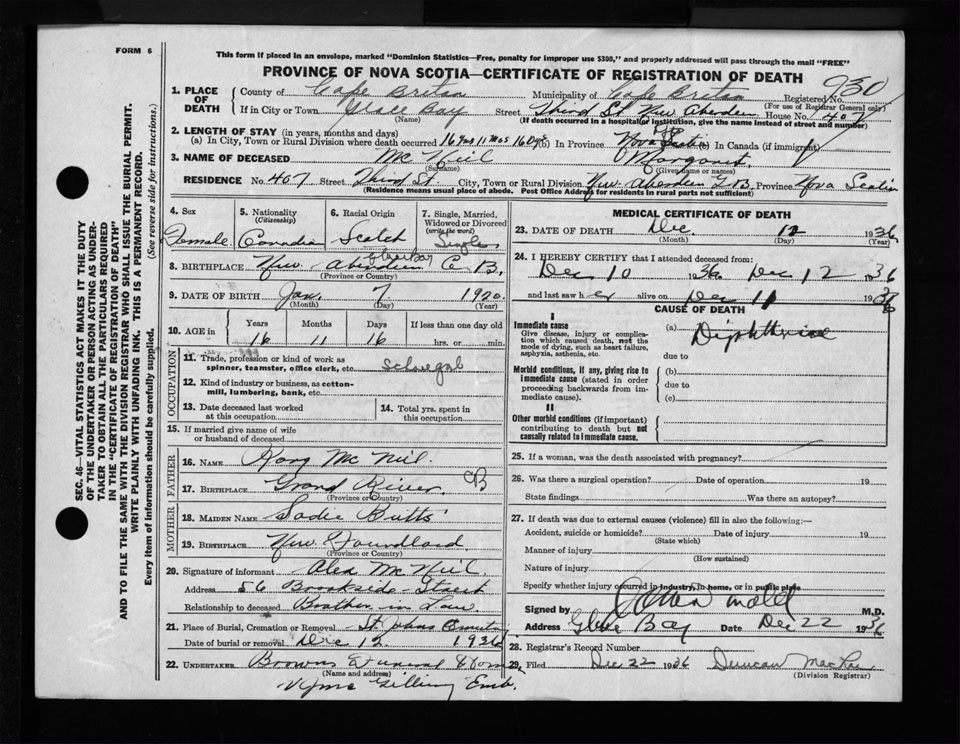 FORM 6
This form if placed in an envelope, marked "Dominion Statistics—Free, penalty for improper use $300," and properly addressed will pass through the mail "FREE"
PROVINCE OF NOVA SCOTIA—CERTIFICATE OF REGISTRATION OF DEATH
930
1. PLACE OF DEATH
County of Cape Breton Municipality of Cape Breton Registered No.
(For use of Registrar General only)
If in City or Town Glace Bay Street Third St New Aberdeen House No. 407
(Name) (If death occurred in a hospital or institution, give the name instead of street and number)
2. LENGTH OF STAY (in years, months and days)
(a) In City, Town or Rural Division where death occurred 16 Yrs 11 Mos 16 Dys (b) In Province Nova Scotia (c) In Canada (if immigrant)
3. NAME OF DECEASED Mc Neil Margaret
(Surname) (Given name or names)
RESIDENCE No. 407 Street Third St. City, Town or Rural Division New Aberdeen G.B. Province Nova Scotia
(Residence means usual place of abode. Post Office Address for residents in rural parts not sufficient)
SEC. 46—VITAL STATISTICS ACT MAKES IT THE DUTY
OF THE UNDERTAKER OR PERSON ACTING AS UNDER-
TAKER TO OBTAIN ALL THE PARTICULARS REQUIRED
IN THE "CERTIFICATE OF REGISTRATION OF DEATH"
AND TO FILE THE SAME WITH THE DIVISION REGISTRAR WHO SHALL ISSUE THE BURIAL PERMIT.
WRITE PLAINLY WITH UNFADING INK. THIS IS A PERMANENT RECORD.
Every item of information should be carefully supplied. (See reverse side for instructions.)
4. Sex
Female
5. Nationality
(Citizenship)
Canadian
6. Racial Origin
Scotch
7. Single, Married, Widowed or Divorced
(write the word)
Single
8. BIRTHPLACE New Aberdeen Glace Bay C.B.
(Province or Country)
9. DATE OF BIRTH Jan. 7 1920
(Month) (Day) (Year)
10. AGE in
Years Months Days If less than one day old
16 11 16 hrs. or min.
OCCUPATION
11. Trade, profession or kind of work as
spinner, teamster, office clerk, etc. School girl
12. Kind of industry or business, as cotton-
mill, lumbering, bank, etc.
13. Date deceased last worked
at this occupation
14. Total yrs. spent in
this occupation
15. If married give name of wife
or husband of deceased
FATHER
16. NAME Rory Mc Neil
17. BIRTHPLACE Grand River CB
(Province or Country)
MOTHER
18. MAIDEN NAME Sadie Butts
19. BIRTHPLACE New Foundland
(Province or Country)
20. Signature of informant Alex McNeil
Address 56 Brookside Street
Relationship to deceased Brother in Law
21. Place of Burial, Cremation or Removal St. Johns Cemetery
Date of burial or removal Dec 12 1936
22. UNDERTAKER Browns Funeral Home
(Name and address)
Emb.
MEDICAL CERTIFICATE OF DEATH
23. DATE OF DEATH Dec 12 1936
(Month) (Day) (Year)
24. I HEREBY CERTIFY that I attended deceased from:
Dec 10 1936 to Dec 12 1936
and last saw her alive on Dec 11 1936
CAUSE OF DEATH
I
Immediate cause
Give disease, injury or complica-
tion which caused death, not the
mode of dying, such as heart failure,
asphyxia, asthenia, etc.
(a) Diphtheria
due to
Morbid conditions, if any, giving rise to
immediate cause (stated in order
proceeding backwards from im-
mediate cause).
(b)
due to
(c)
II
Other morbid conditions (if important)
contributing to death but not
causally related to immediate cause.
25. If a woman, was the death associated with pregnancy?
26. Was there a surgical operation? Date of operation 19
State findings Was there an autopsy?
27. If death was due to external causes (violence) fill in also the following:—
Accident, suicide or homicide? Date of injury 19
(State which)
Manner of injury
(How sustained)
Nature of injury
Specify whether injury occurred in industry, in home, or in public place
Signed by M.D.
Address Glace Bay Date Dec 22 1936
28. Registrar's Record Number
29. Filed Dec 22 1936 Duncan MacRae
(Division Registrar)